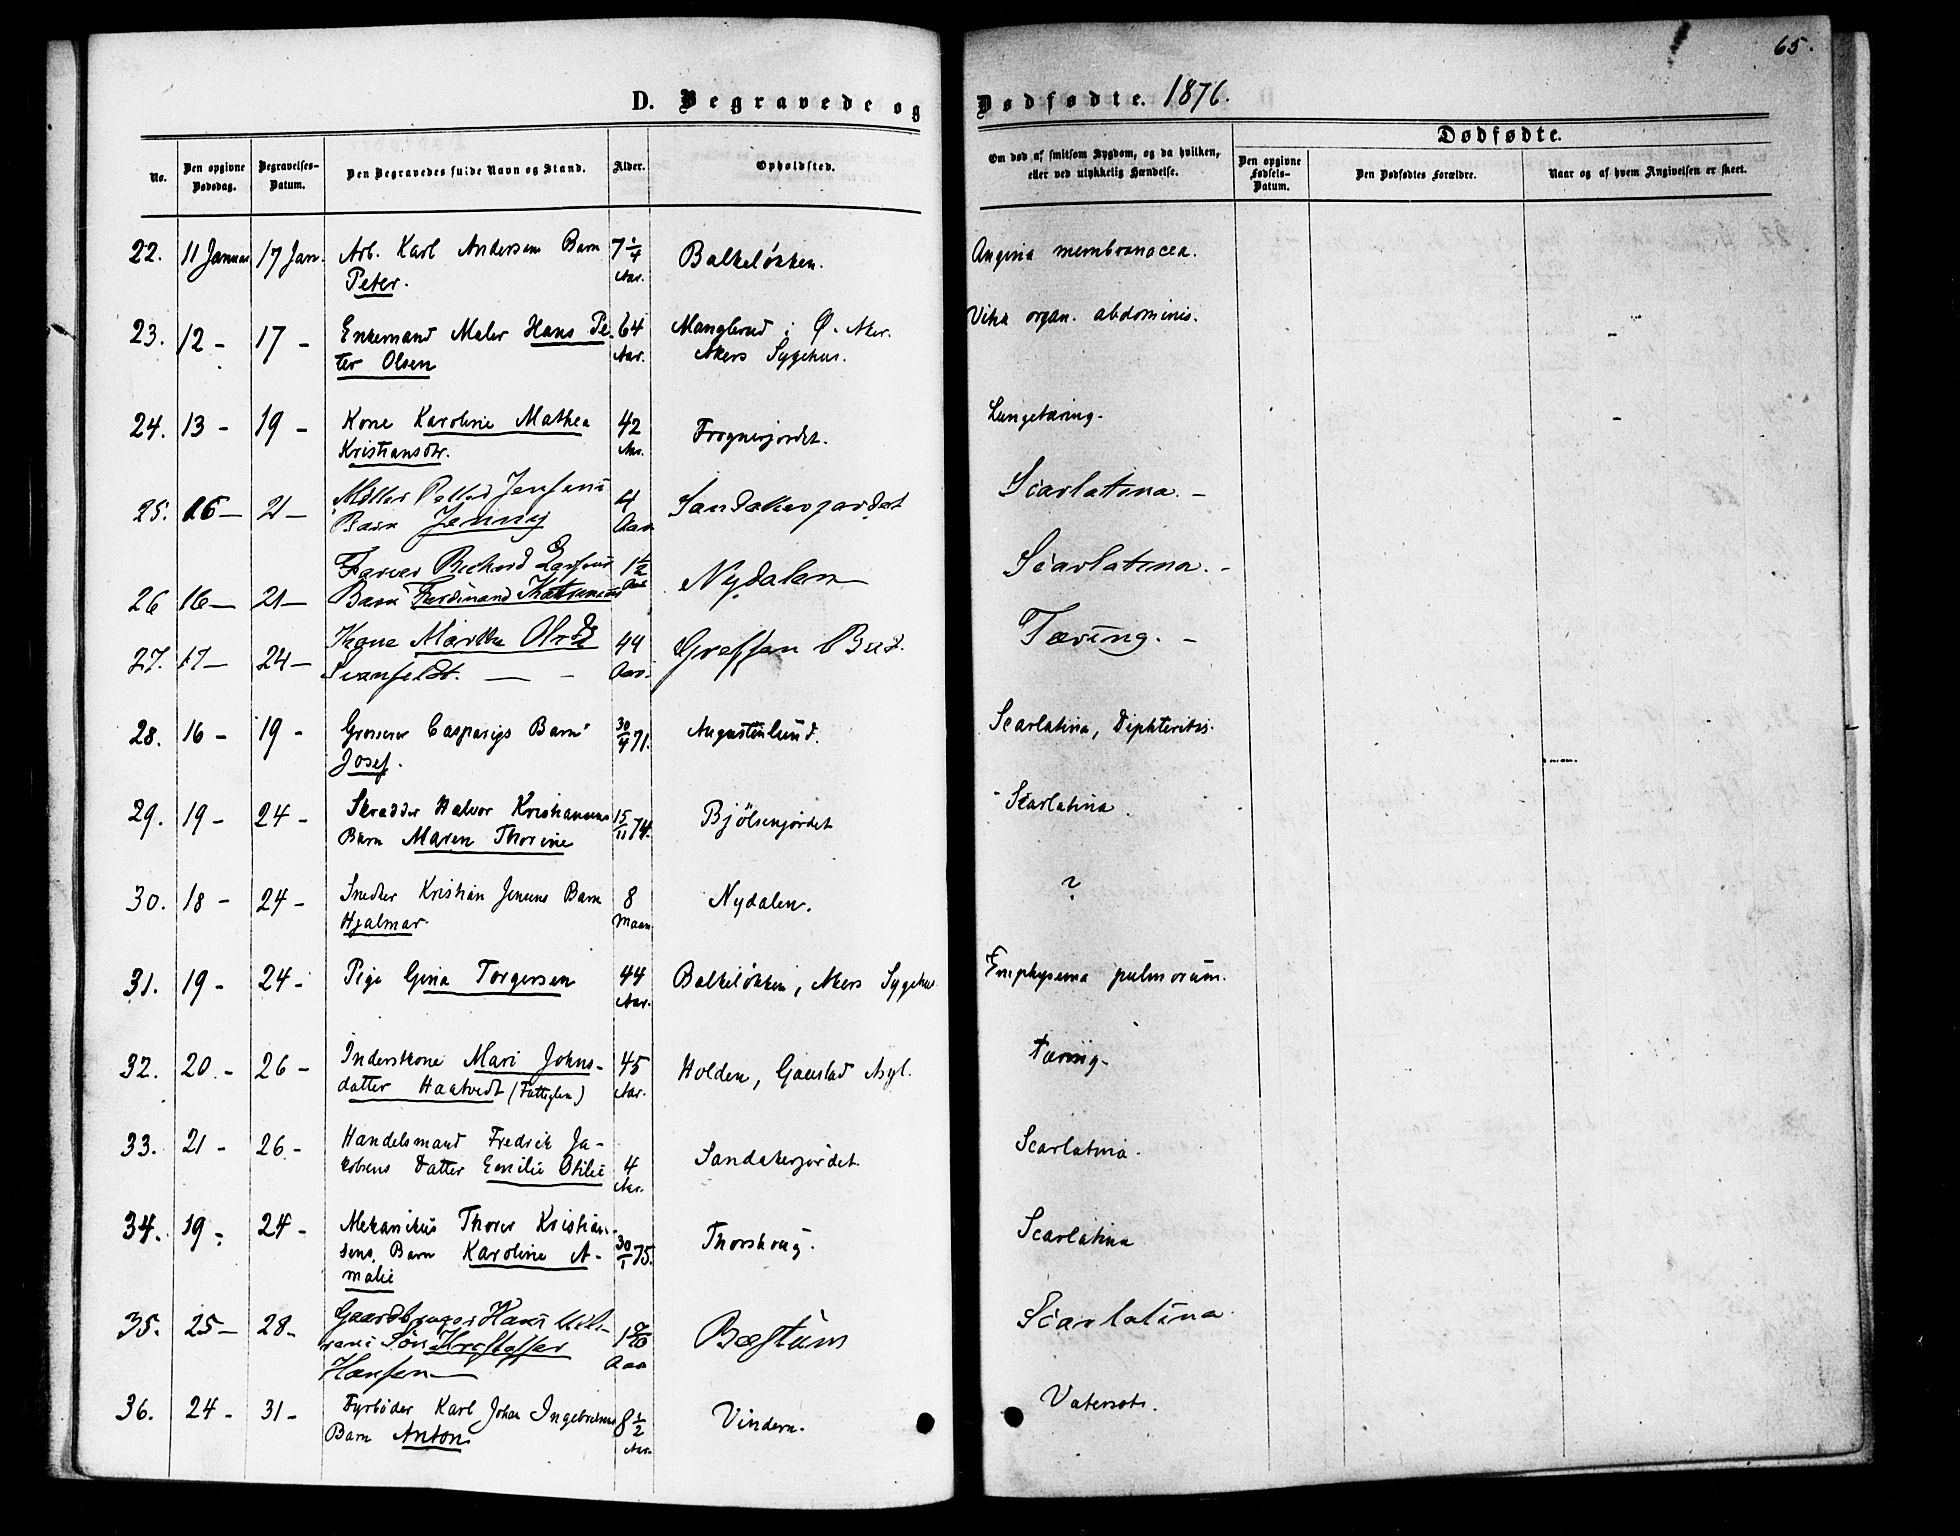 65.
D. Begravede og Dødfødte. 1876.
Dødfødte.
No.
Den opgivne Dødsdag.
Begravelses-Datum.
Den Begravedes fulde Navn og Stand.
Alder.
Opholdsted.
Om død af smitsom Sygdom, og da hvilken, eller ved ulykkelig Hændelse.
Den opgivne Fødsels-Datum.
Den Dødfødtes Forældre.
Naar og af hvem Angivelsen er skeet.
22. 11 Januar 17 Jan. Arb. Karl Andersens Barn 7 1/4 Balkeløkken. Angina membranacea.
Peter. Aar.
23. 12 - 17 - Enkemand Maler Hans Pe- 64 Manglerud i Ø. Aker. Vitia organ. abdominis.
ter Olsen Aar. Akers Sygehus.
24. 13 - 19 - Kone Karoline Mathea 42 Frognerjordet. Lungetæring.
Kristiansdtr. Aar.
25. 16 - 21 - Møller Jensens 4 Sandakerjordet Scarlatina. -
Barn Jenny Aar
26 16 - 21 - Farver Richard 1 1/2 Nydalen Scarlatina. -
Barn Ferdinand Aar
27. 17 - 24 - Kone Marthe 44 Grefsen Bad. Tæring. -
Svanfeldt. Aar.
28. 16 - 19 - Grosserer Casparys Barn 30/4 71. Augustenlund. Scarlatina, Diphteritis.
Josef.
29. 19 - 24 - Skrædder Halvor Kristiansens 15/11 74. Bjölsenjordet Scarlatina.
Barn Maren Thorine
30. 18 - 24 - Snedker Kristian Jensens Barn 8 Nydalen. ?
Hjalmar. Maan
31. 19 - 24 - Pige Gina Torgersen 44 Balkeløkken, Akers Sygehus. Emphysema pulmorum.
Aar.
32. 20 - 26 - Inderstkone Mari Johns- 45 Holden, Gaustad Asyl. Tæring.
datter Haatvedt (Fattiglem) Aar.
33. 21 - 26 - Handelsmand Fredrik Ja- Scarlatina.
kobsens Datter Emilie Otilie 4 Sandakerjordet.
Aar.
34. 19 - 24 - Mekanikus Thorer Kristian- Scarlatina
sens Barn Karoline A- 30/1 75. Thorshoug.
malie
35. 25 - 28 - Gaardbruger Hans Scarlatina.
Søn Kristoffer Bestum
Hansen Aar
36. 24 - 31 - Fyrbøder Karl Johan Ingebretsens 8 1/2 Vindern. Vatersot.
Barn Anton Aar.